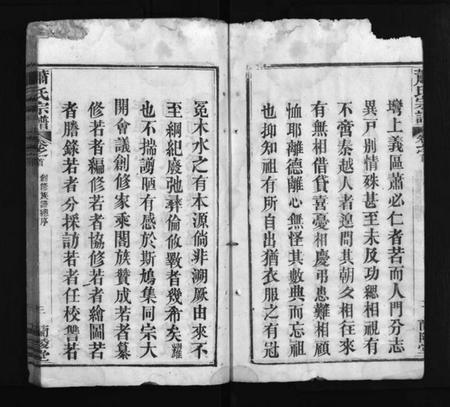 蕭氏宗譜
卷之首
壪上義區蕭必仁者若而人門分志
異戸別情殊甚至未及功緦相視有
不啻秦越人者遑問其朝夕相徃來
有無相借貸喜憂相慶弔患難相顧
恤耶離德離心無怪其數典而忘祖
也抑知祖有所自出猶衣服之有冠
冕木水之有本源倘非溯厥由來不
至綱紀廢弛彝倫攸斁者幾希矣耀
也不揣謭陋有感於斯鳩集同宗大
開會議創修家乘闔族贊成若者纂
修若者編修若者協修若者繪圖若
者謄錄若者分採訪若者任校讐若
蕭氏宗譜
卷之首
創修族譜總序
三
蘭陵堂